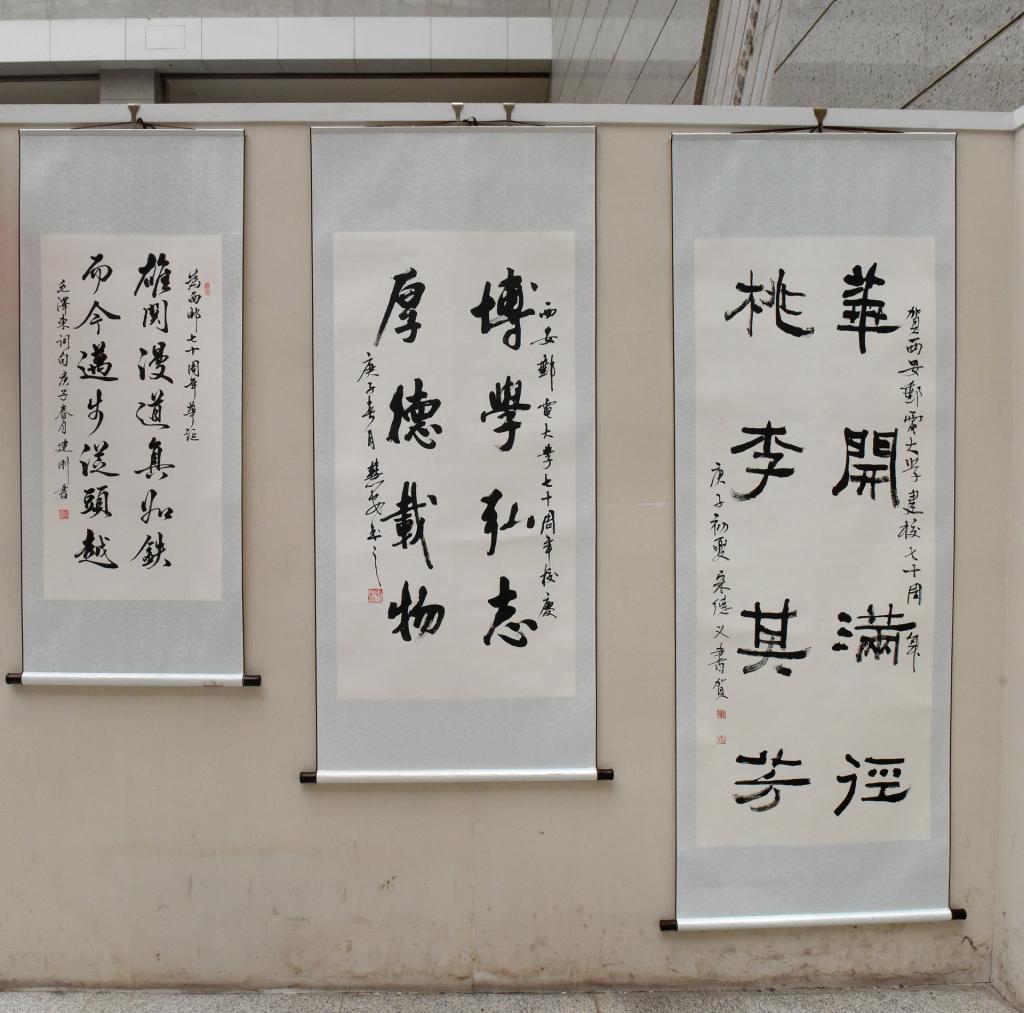 賀西安郵電大学建校七十周年
華開滿徑
桃李其芳
庚子初夏宋德义書賀
西安郵電大學七十周年校慶
博學弘志
厚德載物
庚子春月慧安書之
為西邮七十周年華誕
雄関漫道真如鉄
而今邁步從頭越
毛澤東詞句庚子春月建剛書